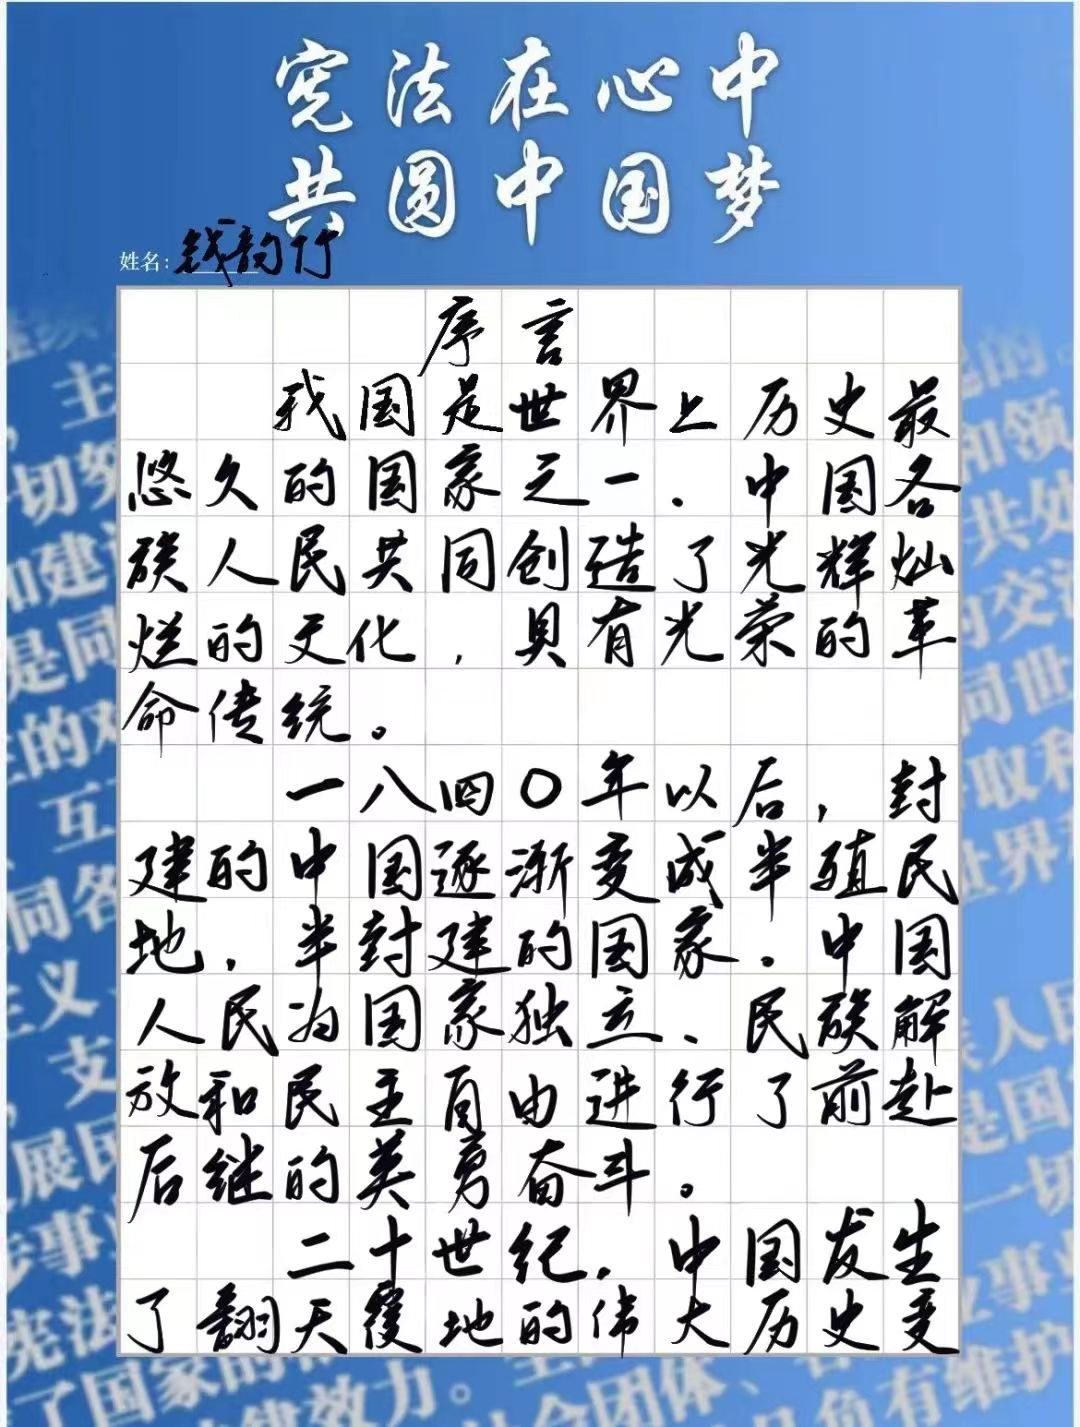 宪法在心中
共圆中国梦
姓名：钱韵竹
序言
我国是世界上历史最
悠久的国家之一．中国各
族人民共同创造了光辉灿
烂的文化，具有光荣的革
命传统。
一八四〇年以后，封
建的中国逐渐变成半殖民
地，半封建的国家．中国
人民为国家独立、民族解
放和民主自由进行了前赴
后继的英勇奋斗。
二十世纪，中国发生
了翻天覆地的伟大历史变